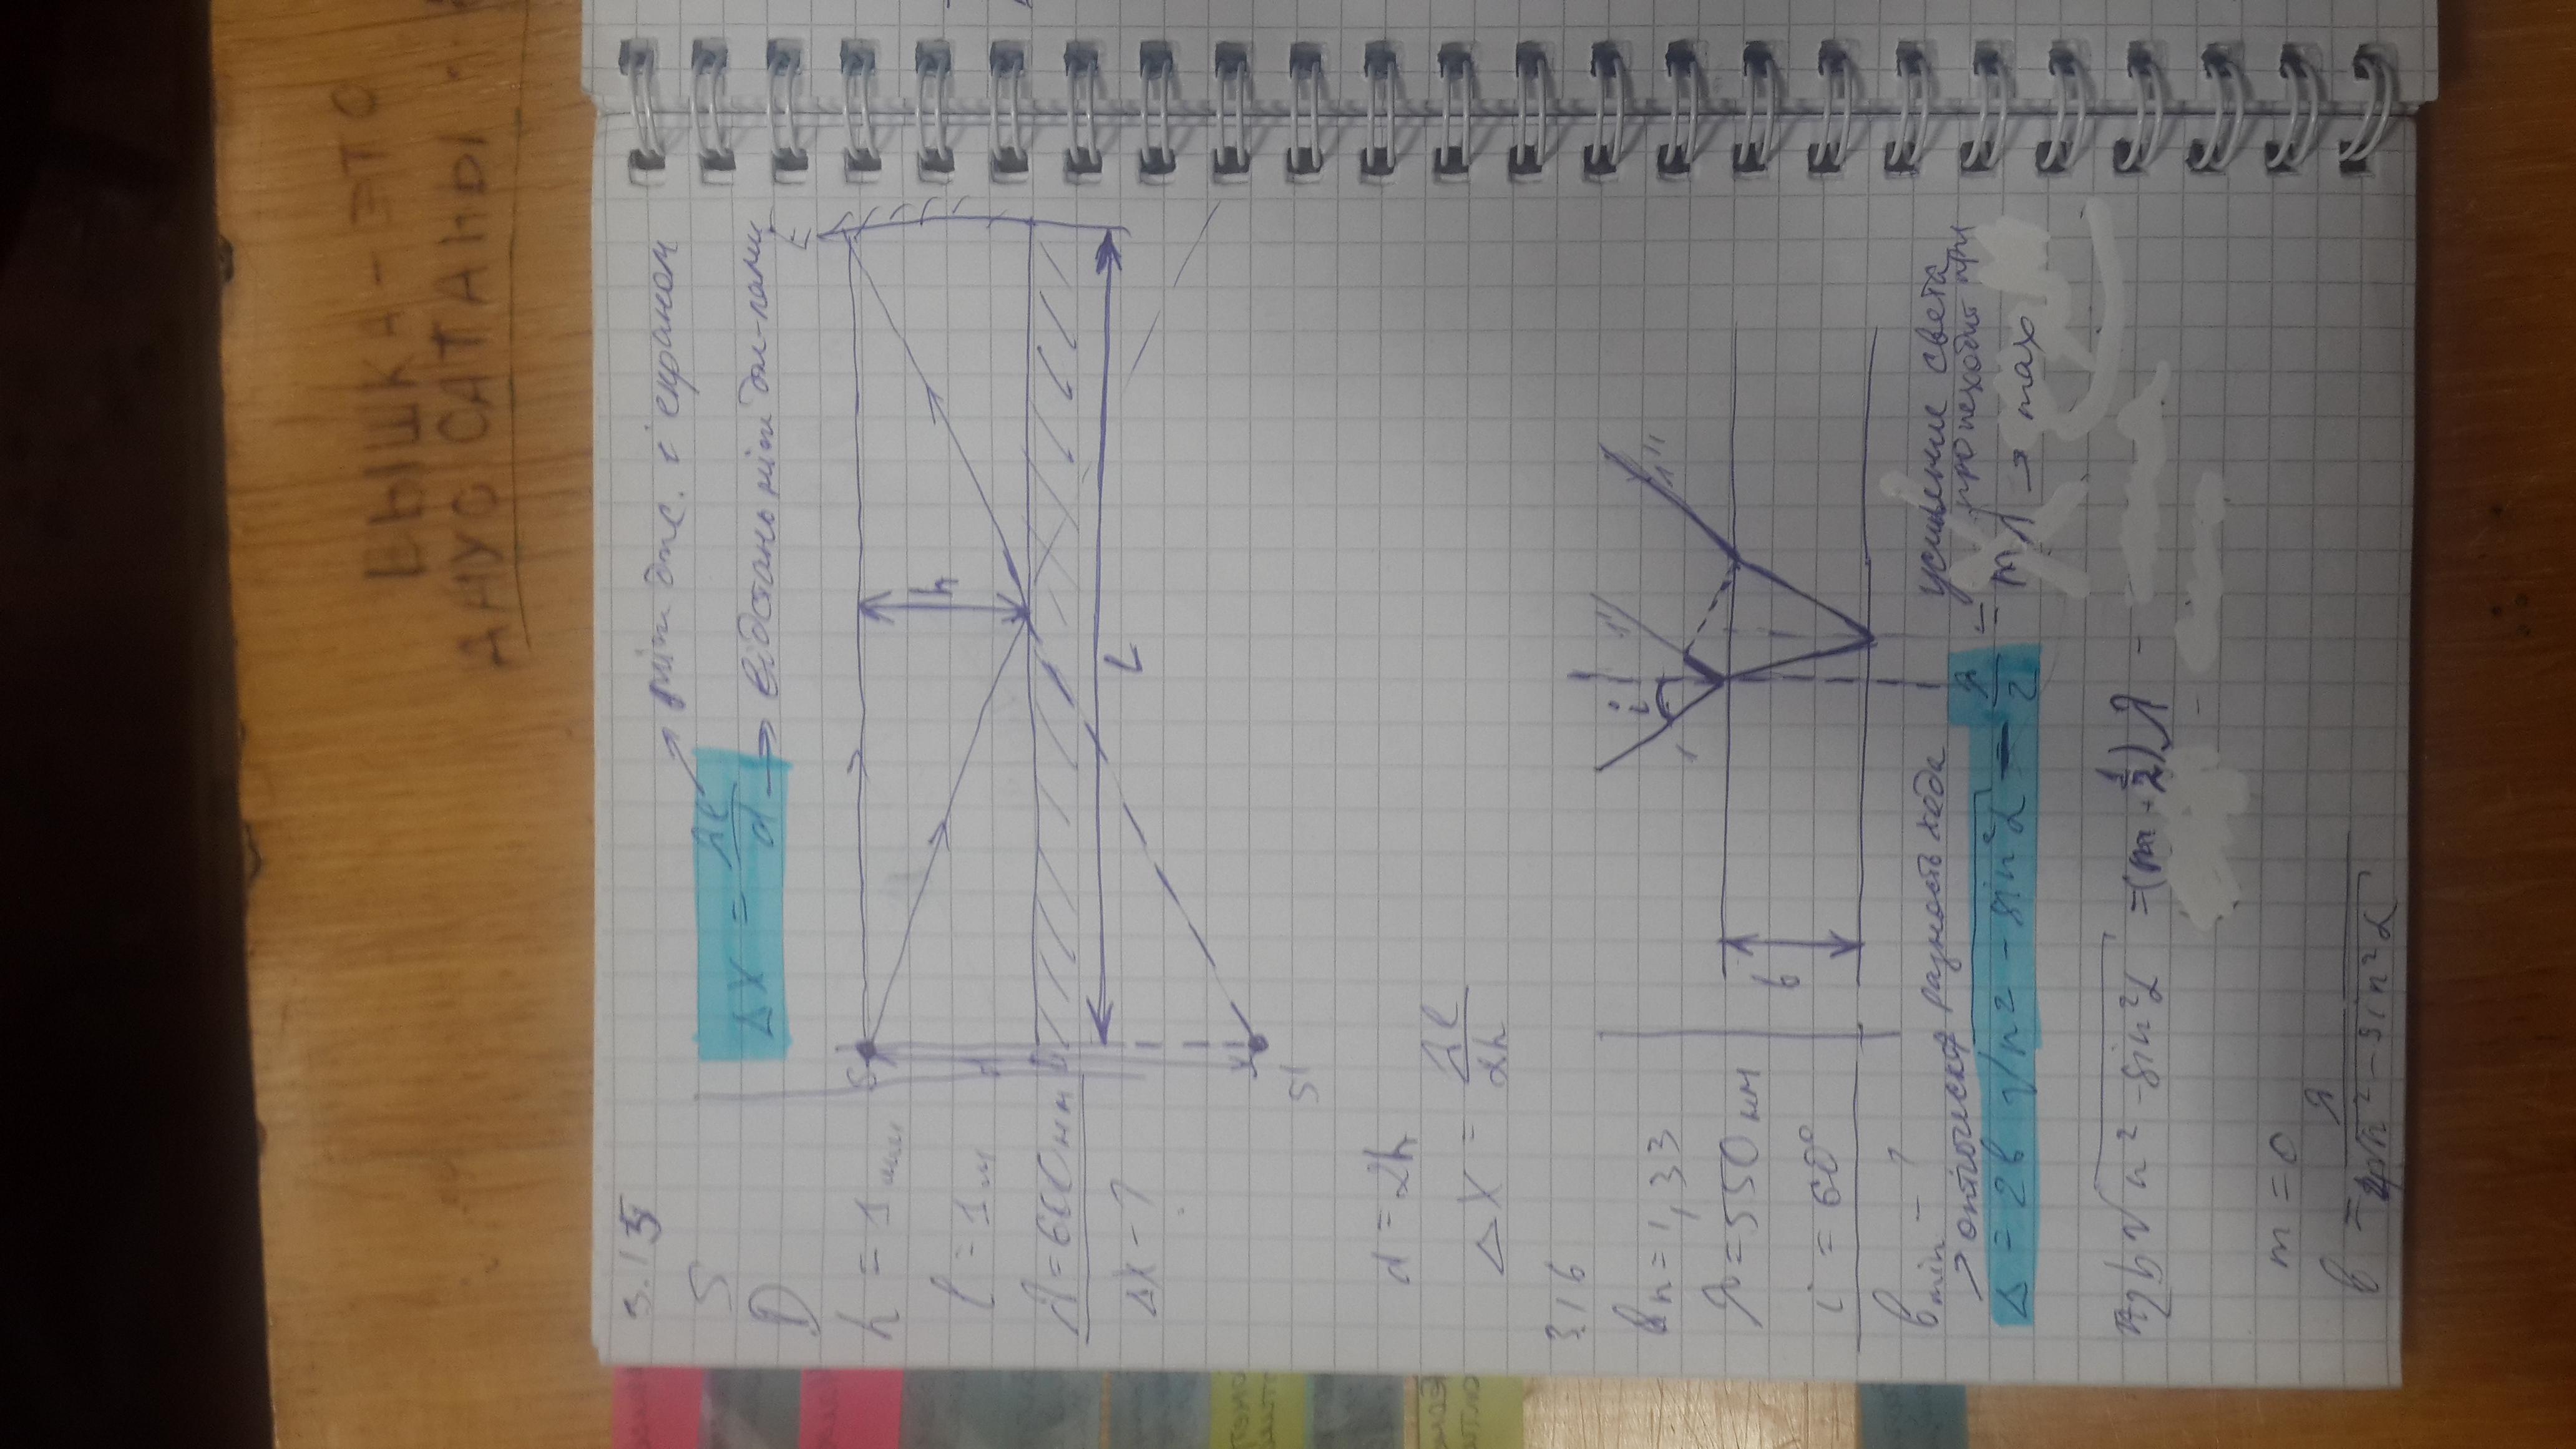 ВЫШКА - ЭТО
АНУС САТАНЫ
3.15
S
D
h = 1 мм
l = 1 м
λ = 600 нм
Δx - ?
Δx = λl/d
між дж. і екраном
відстань між дж-лами
S
E
h
d
L
S'
d = 2h
Δx = λl/2h
3.16
n = 1,33
λ = 550 нм
i = 60°
b min - ?
i
1
1'
1''
b
оптическая разность хода
усиление света
происходит при
Δ = 2b √n² - sin²α - λ/2 = mλ → max
2b√n² - sin²α = (m - 1/2)λ -
m = 0
b = λ/4√n² - sin²α